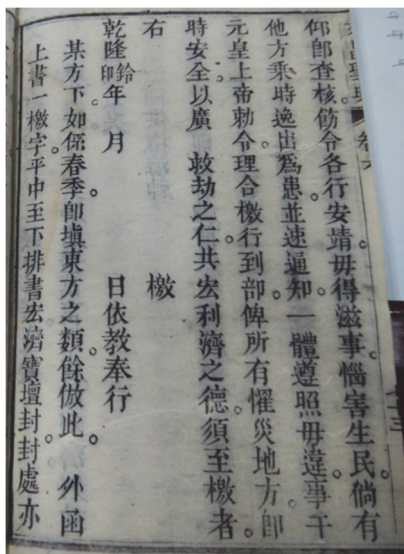 卷六
仰卽查核飭令各行安靖毋得滋事惱害生民倘有
他方乘時逸出爲患並速通知一體遵照毋違事干
元皇上帝勅令理合檄行到部俾所有罹災地方卽
時安全以廣 救劫之仁共宏利濟之德須至檄者
右 檄
乾隆鈐印年 月 日依敎奉行
某方下如係春季卽塡東方之類餘倣此 外函
上書一檄字平中至下排書宏濟寶壇封封處亦